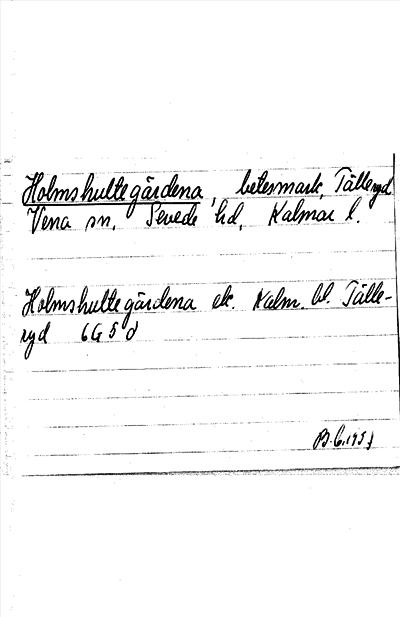 Holmshultegärdena, betesmark, Tälleryd
Vena sn, Sevede hd, Kalmar l.
Holmshultegärdena ek. Kalm. bl. Tälle-
ryd 6G5d